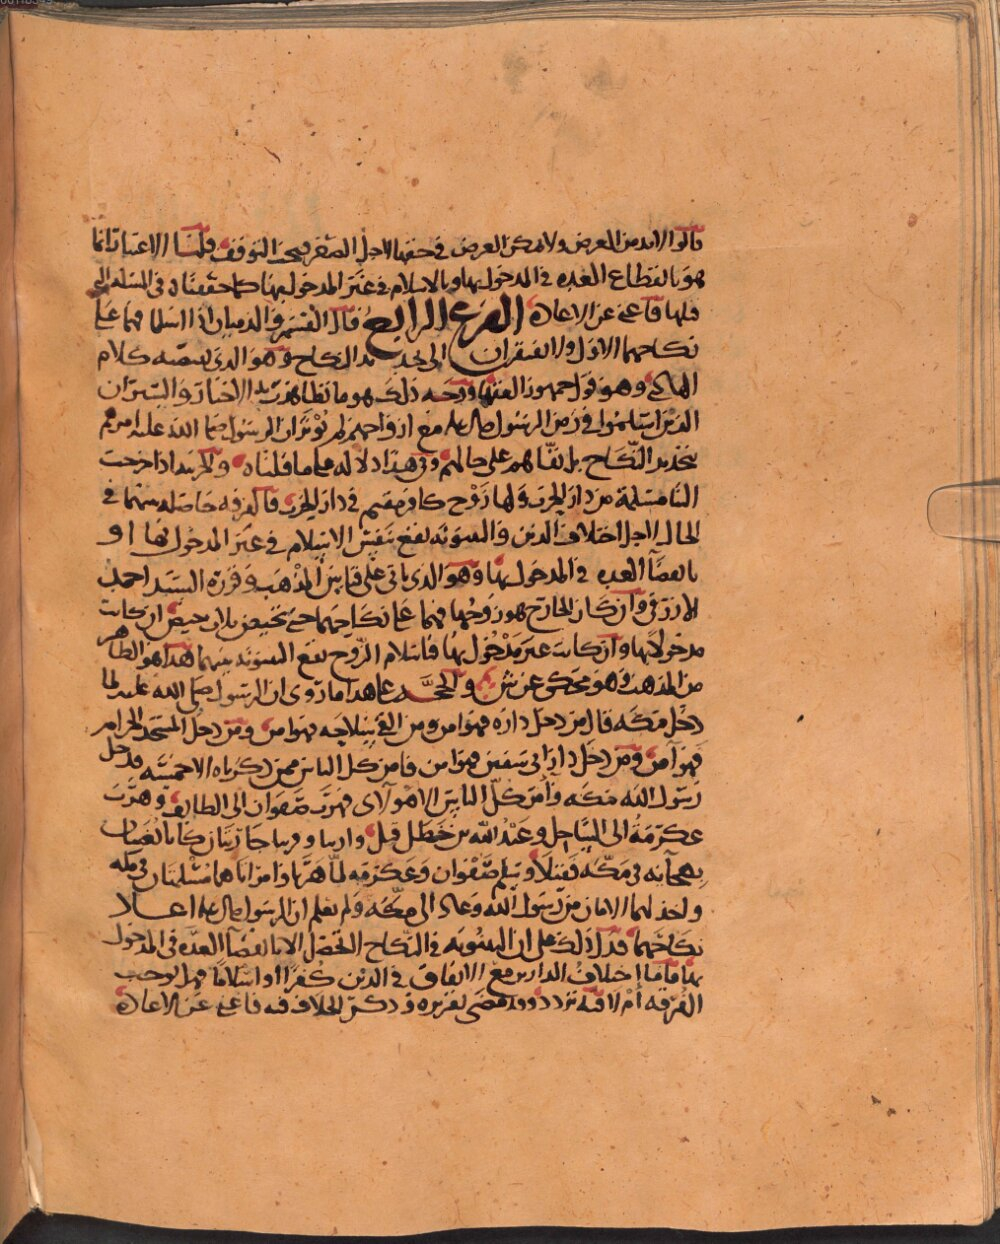 قالوا لابد من العرض ولا يمكن العرض في حقها لاجل الصغر فيجب التوقف قلنا الاعتبار انما
هو بانقطاع العده في المدخول بها وبالاسلام في غير المدخول بها كما حققناه في المسله التي
قبلها فاغنى عن الاعادة الفرع الرابع قال القسم والذميان اذا اسلما فهما على
نكاحهما الاول ولا يفتقران الى تجديد النكاح وهو الذي نصه كلام
الهادي وهو قول جمهور الفقها ووجه ذلك هو ما تظاهرت به الاخبار والسير ان
الذين اسلموا في زمن الرسول صلى الله مع ازواجهم لم يؤثر ان الرسول صلى الله عليه امرهم
بتجديد النكاح بل بقاهم على حالهم وفي هذا دلاله على ما قلناه والحربيه اذا خرجت
الينا مسلمة من دار الحرب ولها زوج كافر مقيم في دار الحرب فالفرقه حاصله بينهما في
الحال لاجل اختلاف الدين والبينونه تقع بنفس الاسلام في غير المدخول بها او
بانقضآ العده في المدخول بها وهو الذي ياتي على قياس المذهب وقرره السيد احمد
الازرقي وان كان الخارج هو زوجها فهما على نكاحهما حتى تحيض ثلاث حيض ان كانت
مدخولا بها وان كانت غير مدخول بها فاسلام الزوج تقع البينونه بينهما هذا هو الظاهر
من المذهب وهو محكي عن ش والحجه على هذا ما روي ان الرسول صلى الله عليه لما
دخل مكه قال من دخل داره فهو امن ومن القى سلاحه فهو امن ومن دخل المسجد الحرام
فهو آمن ومن دخل دار ابي سفين فهو امن فامن كل الناس ممن ذكرناه الا خمسه فدخل
رسول الله مكه وآمن كل الناس الا هولآى فهرب صفوان الى الطايف وهرب
عكرمة الى الساحل وعبد الله بن خطل قتل وجاريتان كانا تغنيان
بهجآئه في مكه فقتلا وسلم صفوان وعكرمه لما هربا وامراتاهما مسلمتان في مكه
واخذ لهما الامان من رسول الله وعادا الى مكه ولم نعلم ان الرسول صلى الله اعاد
نكاحهما فدل ذلك على ان البينونه في النكاح لا تحصل الا بانقضآ العده في المدخول
بها فاما اختلاف الدارين مع الاتفاق في الدين كفرا او اسلاما فهل يوجب
الفرقه ام لا فيه تردد وقد مضى تقريره وذكر الخلاف فيه فاغنى عن الاعادة